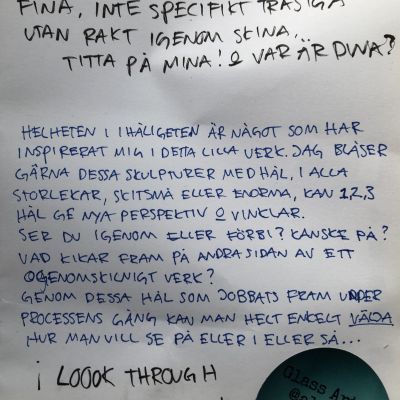 FINA, INTE SPECIFIKT TRASIGA
UTAN RAKT IGENOM SKINA...
TITTA PÅ MINA! & VAR ÄR DINA?
HELHETEN I IHÅLIGETEN ÄR NÅGOT SOM HAR
INSPIRERAT MIG I DETTA LILLA VERK. JAG BLÅSER
GÄRNA DESSA SKULPTURER MED HÅL, I ALLA
STORLEKAR, SKITSMÅ ELLER ENORMA, KAN 1,2,3
HÅL GE NYA PERSPEKTIV & VINKLAR.
SER DU IGENOM ELLER FÖRBI? KANSKE PÅ?
VAD KIKAR FRAM PÅ ANDRA SIDAN AV ETT
OGENOMSKINIGT VERK?
GENOM DESSA HÅL SOM JOBBATS FRAM UNDER
PROCESSENS GÅNG KAN MAN HELT ENKELT VÄLJA
HUR MAN VILL SE PÅ ELLER I ELLER SÅ...
¡ LOOOK THROUGH
Glass Art